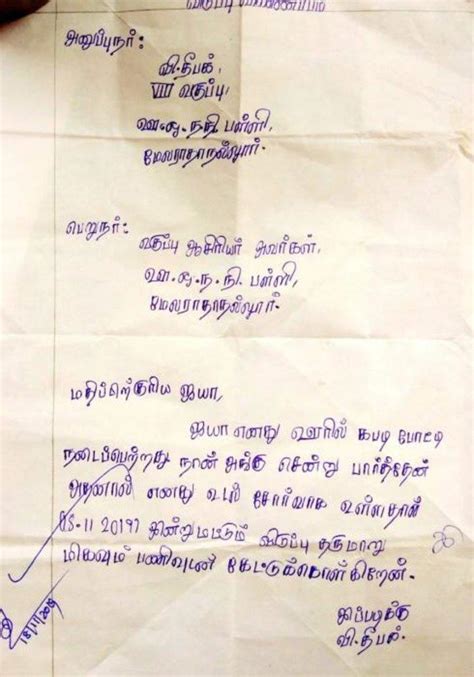 விடுப்பு விண்ணப்பம்
அனுப்புநர்:
வி.தீபக்,
VIII வகுப்பு,
ஊ.ஒ.ந.நி பள்ளி,
மேலராதாநல்லூர்.
பெறுநர்:
வகுப்பு ஆசிரியர் அவர்கள்,
ஊ.ஒ.ந.நி. பள்ளி,
மேலராதாநல்லூர்.
மதிப்பிற்குரிய ஐயா,
ஐயா எனது ஊரில் கபடி போட்டி
நடைப்பெற்றது நான் அங்கு சென்று பார்த்தேன்
அதனால் எனது உடல் சோர்வாக உள்ளதால்
இன்று மட்டும் விடுப்பு தருமாறு
மிகவும் பணிவுடன் கேட்டுக்கொள்கிறேன்.
இப்படிக்கு
வி.தீபக்.